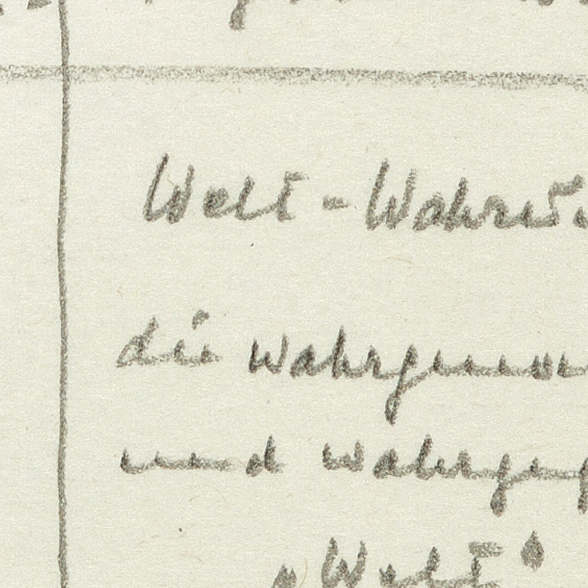 Welt - Wahr
die wahrgenom
und wahrge
"Welt"